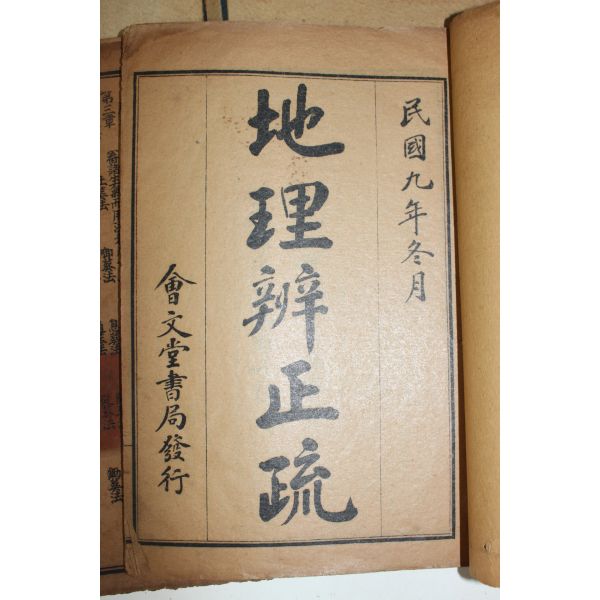 民國九年冬月
地理辨正疏
會文堂書局發行
第三章